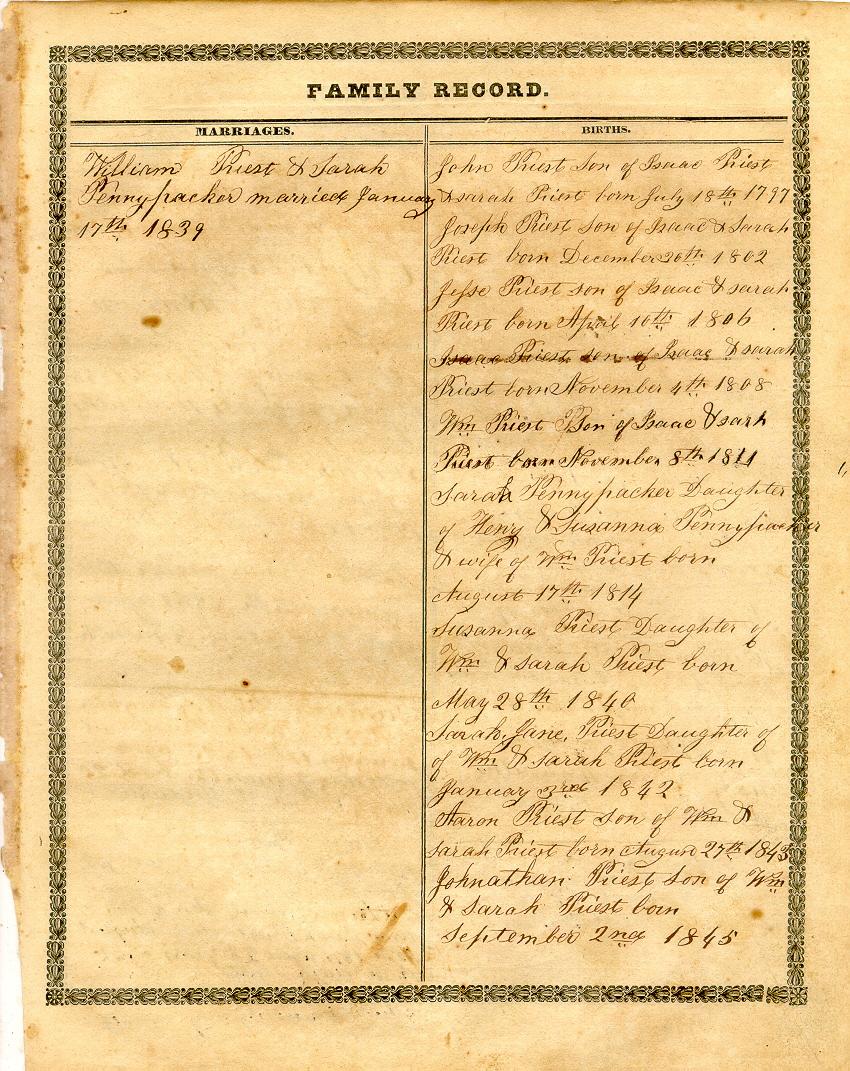 FAMILY RECORD.
MARRIAGES.
William Priest & Sarah
Pennypacker married January
17th 1839
BIRTHS.
John Priest son of Isaac Priest
& sarah Priest born July 18th 1797
Joseph Priest son of Isaac & Sarah
Priest born December 20th 1802
Jesse Priest son of Isaac & sarah
Priest born April 10th 1806
Isaac Priest son of Isaac & sarah
Priest born November 4th 1808
Wm Priest Son of Isaac & sarh
Priest born November 8th 1811
Sarah Pennypacker Daughter
of Henry & Susanna Pennypacker
& wife of Wm Priest born
August 17th 1814
Susanna Priest Daughter of
Wm & sarah Priest born
May 28th 1840
Sarah Jane Priest Daughter of
of Wm & sarah Priest born
January 3rd 1842
Aaron Priest son of Wm &
sarah Priest born August 27th 1843
Johnathan Priest son of Wm
& Sarah Priest born
September 2nd 1845